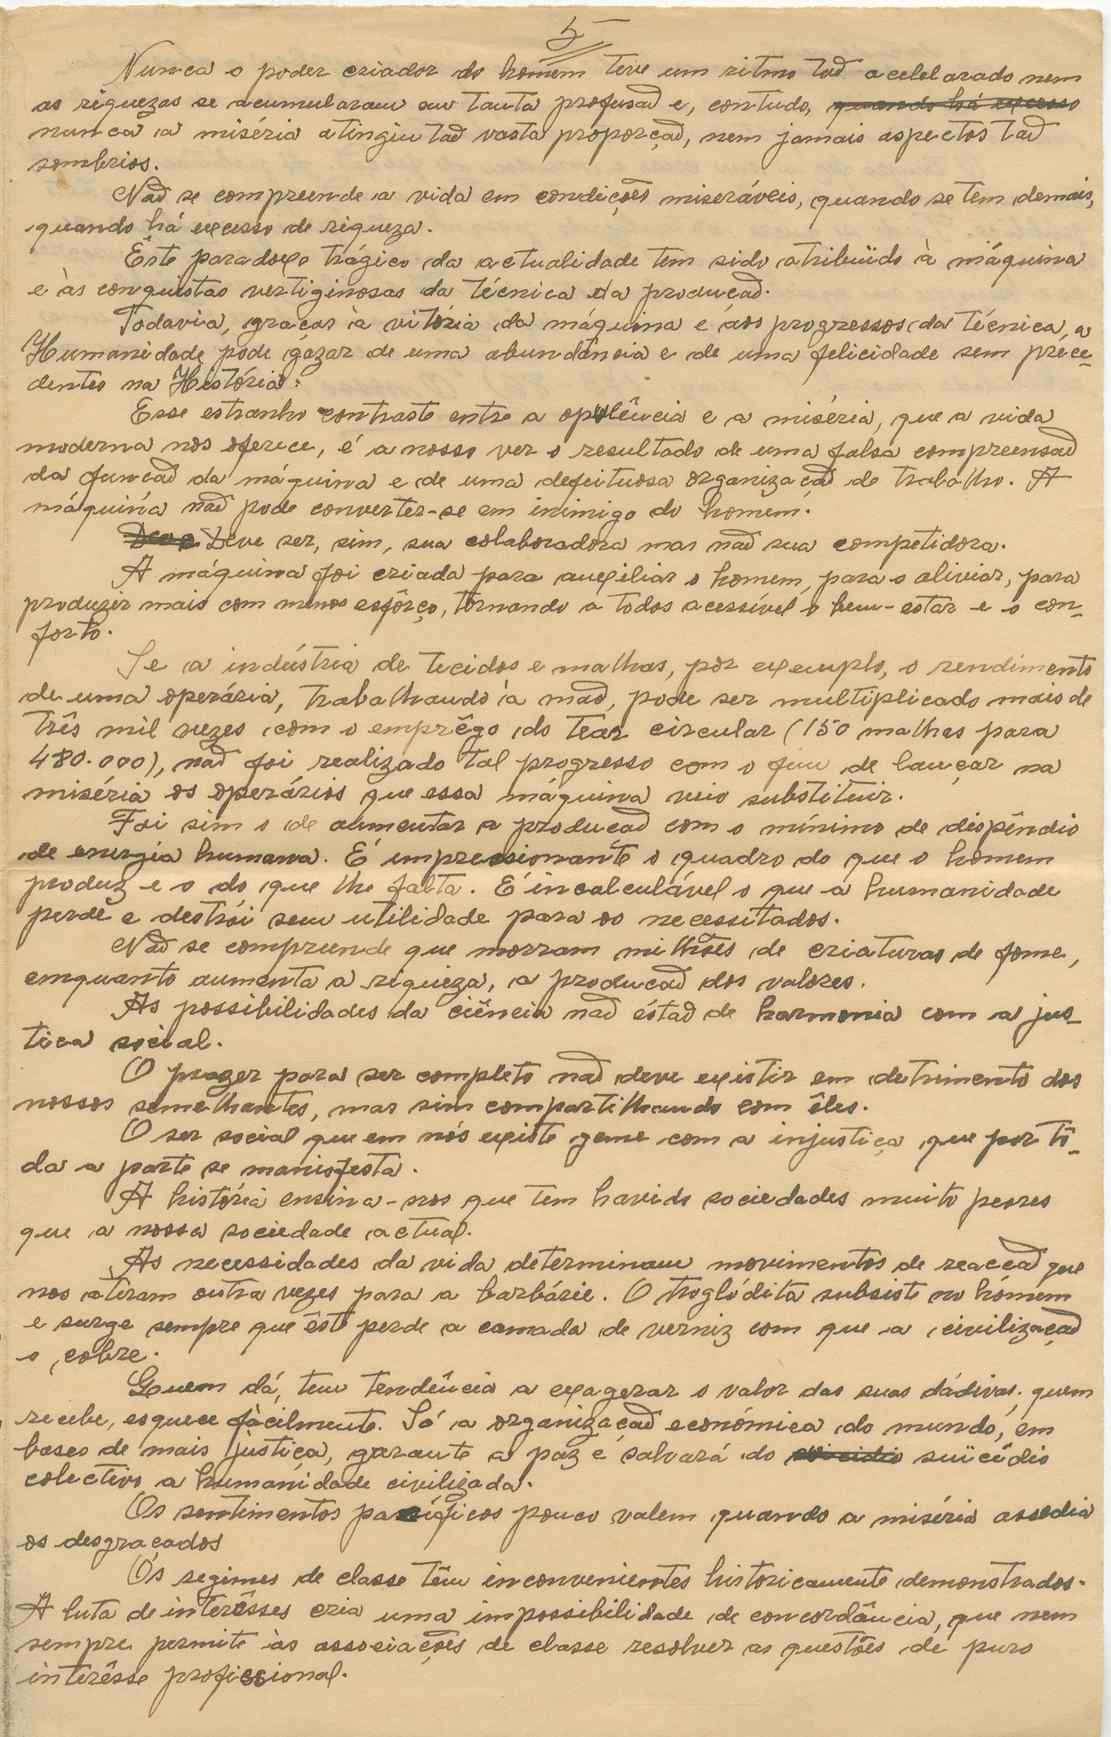 5
Nunca o poder criador do homem teve um ritmo tão acelelarado nem
as riquezas se acumularam em tanta profusão e, contudo, quando há excesso
nunca a miséria atingiu tão vasta proporção, nem jamais aspectos tão
sombrios.
Não se compreende a vida em condições miseráveis, quando se tem demais,
quando há excesso de riqueza.
Êste paradoxo trágico da actualidade tem sido atribuïdo à máquina
e às conquistas vertiginosas da técnica da produção.
Todavia, graças à vitória da máquina e aos progressos da técnica, a
Humanidade pode gozar de uma abundância e de uma felicidade sem préce-
dentes na História.
Esse estranho contraste entre a opulência e a miséria, que a vida
moderna nos oferece, é a nosso ver o resultado de uma falsa compreensão
da função da máquina e de uma defeituosa organização de trabalho. A
máquina não pode converter-se em inimigo do homem.
Deve Deve ser, sim, sua colaboradora mas não sua competidora.
A máquina foi criada para auxiliar o homem, para o aliviar, para
produzir mais com menos esfôrço, tornando a todos acessível o bem-estar e o con-
forto.
Se a indústria de tecidos e malhas, por exemplo, o rendimento
de uma operária, trabalhando à mão, pode ser multiplicado mais de
três mil vezes com o emprêgo do tear circular (150 malhas para
480.000), não foi realizado tal progresso com o fim de lançar na
miséria os operários que essa máquina veio substituir.
Foi sim o de aumentar a produção com o mínimo de dispêndio
de energia humana. É impressionante o quadro do que o homem
produz e o do que lhe falta. É incalculável o que a humanidade
perde e destrói sem utilidade para os necessitados.
Não se compreende que morram milhões de criaturas de fome,
emquanto aumenta a riqueza, a produção dos valores.
As possibilidades da ciência não estão de harmonia com a jus-
tiça social.
O prazer para ser completo não deve existir em detrimento dos
nossos semelhantes, mas sim compartilhando com êles.
O ser social que em nós existe geme com a injustiça que por tô-
da a parte se manisfesta.
A história ensina-nos que tem havido sociedades muito peores
que a nossa sociedade actual.
As necessidades da vida determinam movimentos de reacção que
nos atiram outra vezes para a barbárie. O troglódita subsiste no hómem
e surge sempre que êste perde a camada de verniz com que a civilização
o cobre.
Quem dá, tem tendência a exagerar o valor das suas dádivas; quem
recebe, esquece fàcilmente. Só a organização económica do mundo, em
bases de mais justiça, garante a paz e salvará do suicidio suïcídio
colectivo a humanidade civilizada.
Os sentimentos pacíficos pouco valem quando a miséria assedia
os desgraçados
Os regimes de classe têm inconvenientes historicamente demonstrados.
A luta de interêsses cria uma impossibilidade de concordância, que nem
sempre permite às associações de classe resolver as questões de puro
interêsse profissional.